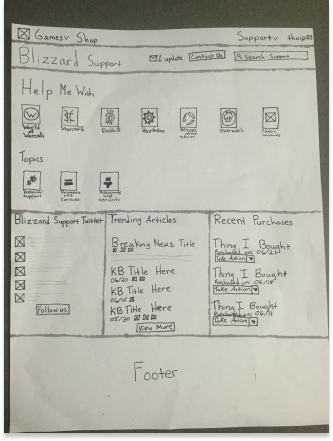 Games∨ Shop Support∨
Blizzard Support 1 update Contact Us Search Support
Help Me With
World of Warcraft Starcraft II Diablo III Hearthstone Heroes of the Storm Overwatch Classic
Topics
Technical Support and Services and Security
Blizzard Support Twitter Trending Articles Recent Purchases
Breaking News Title
Thing I Bought
Purchased on: 06/21
Take Action
KB Title Here
06/20
Thing I Bought
Purchased on: 06/18
Take Action
KB Title Here
06/15
KB Title Here
05/30
Thing I Bought
Purchased on: 06/11
Take Action
Follow us
View More
Footer